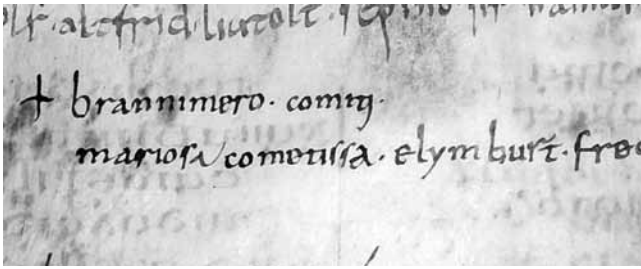 altfrid · liutolt ·
+ brannimero · comiti ·
mariosa cometissa · elymburt · fre